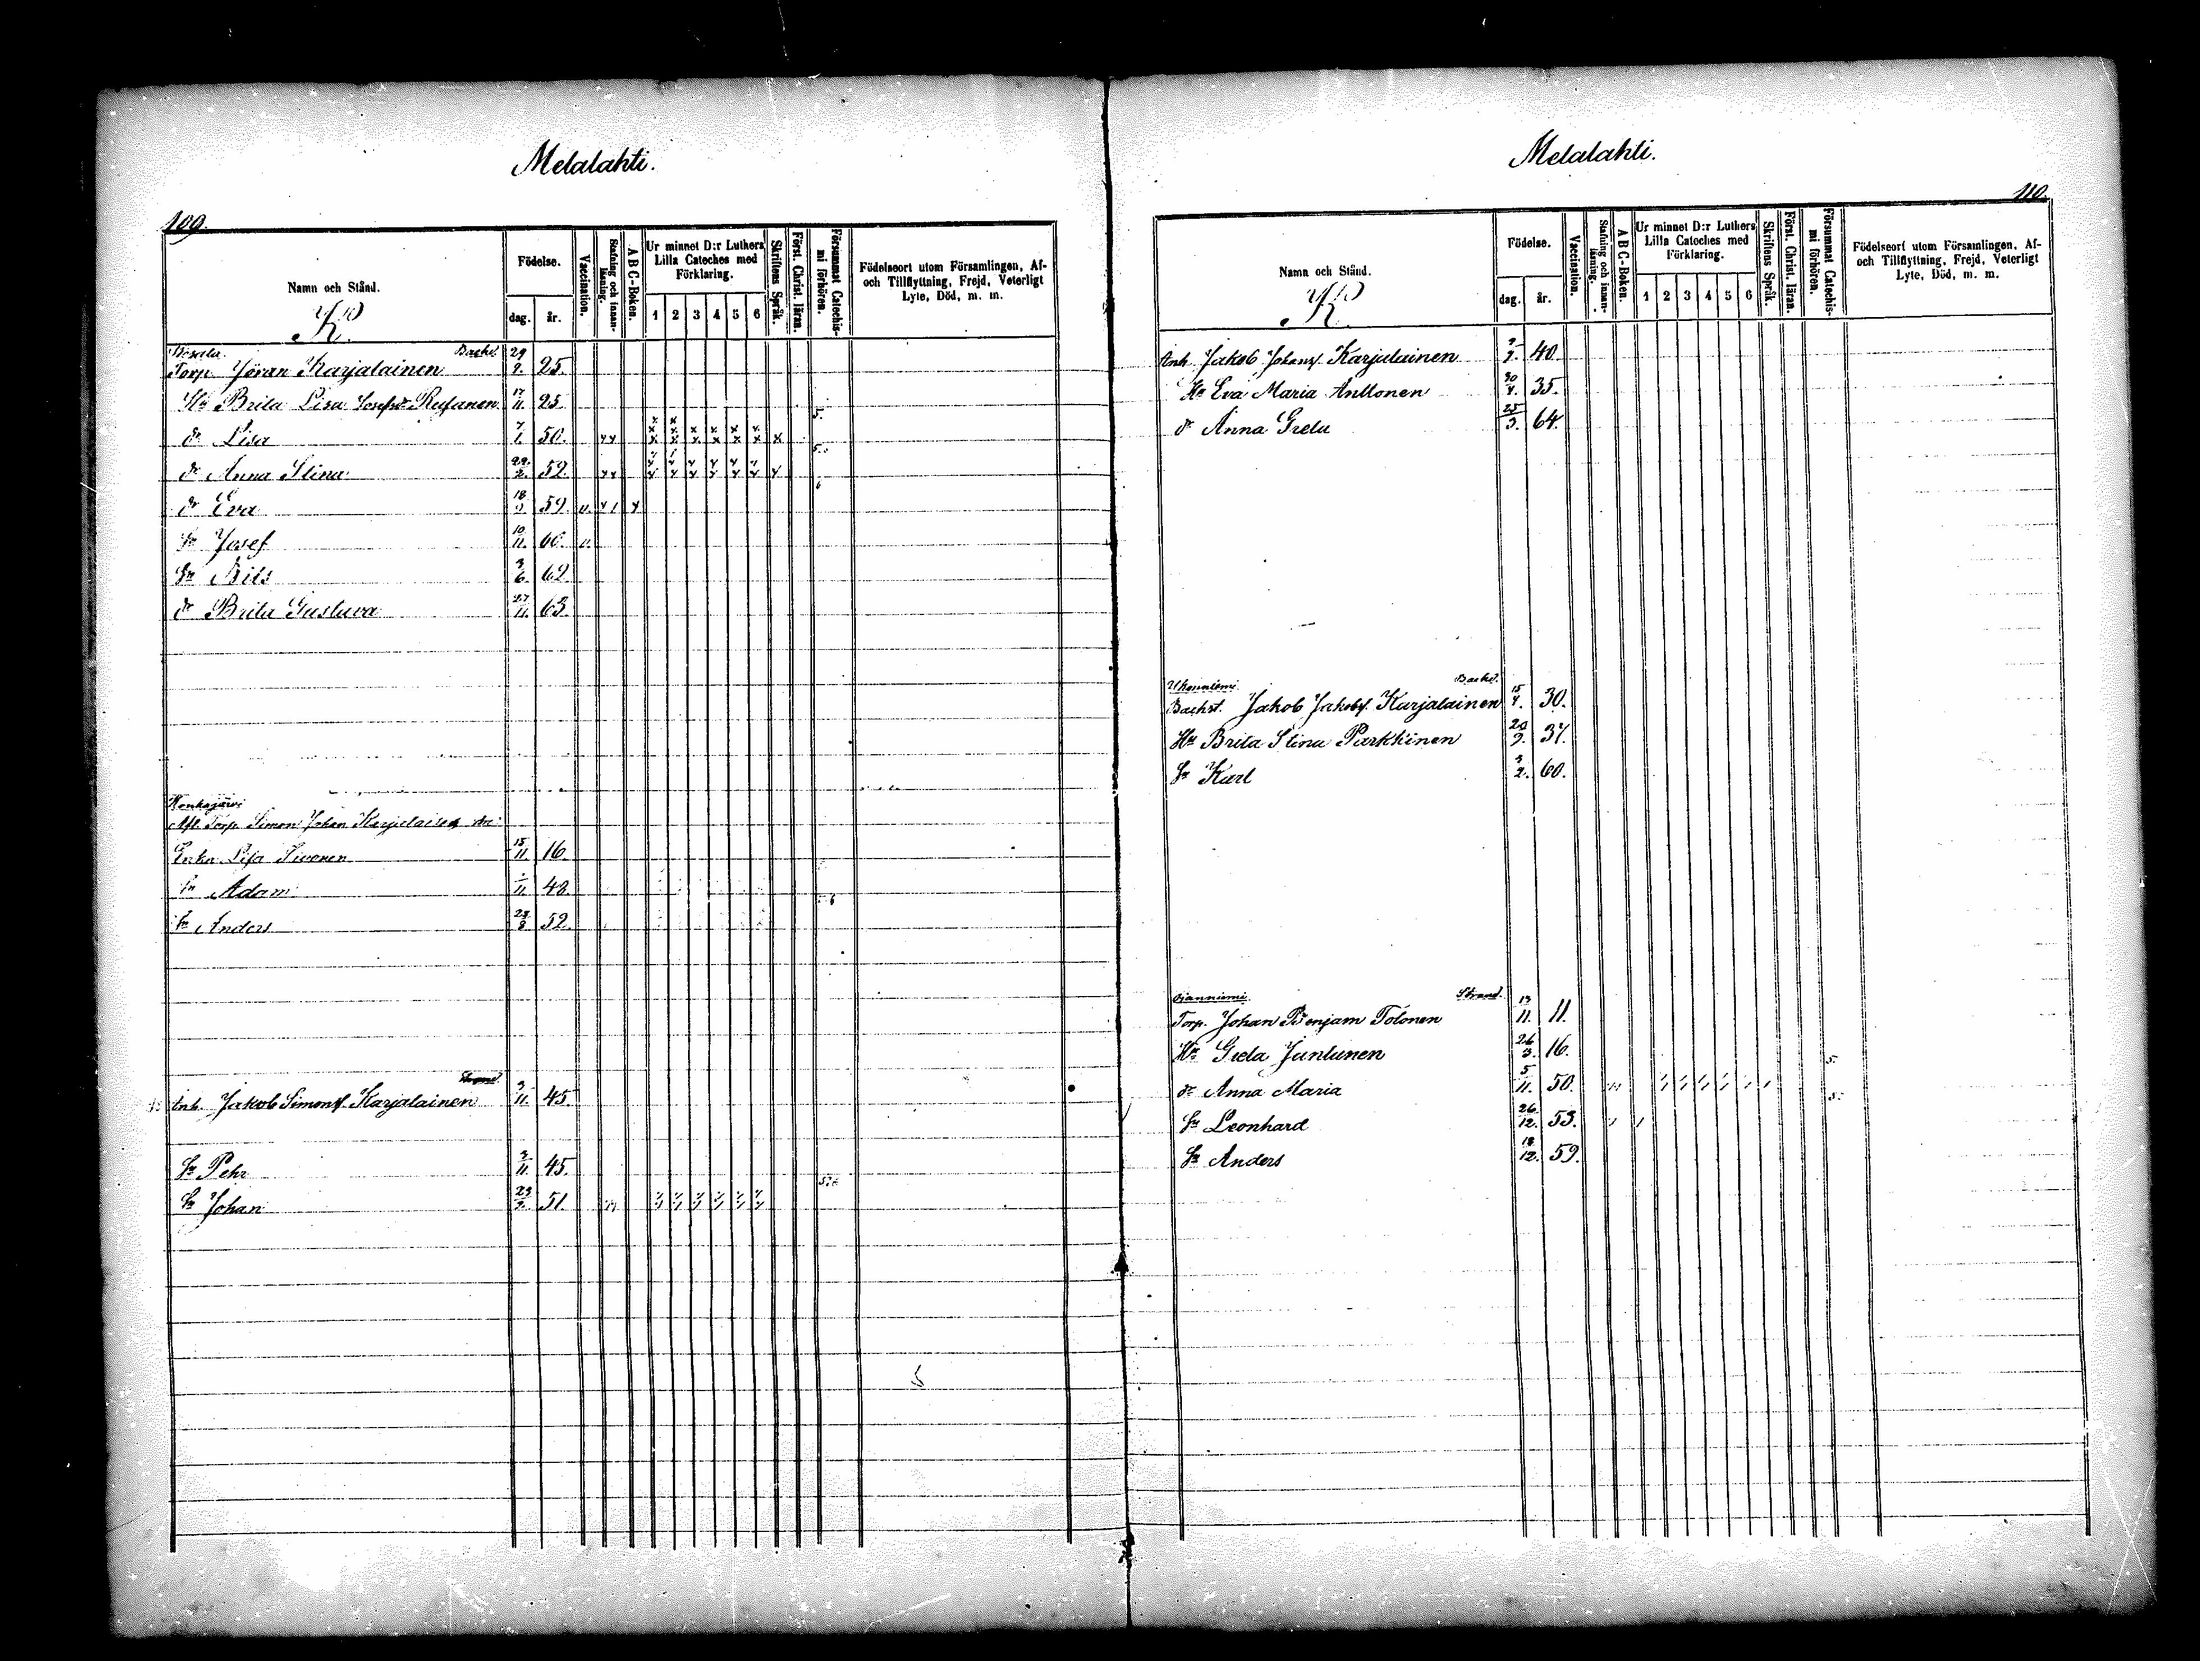 Melalahti.
109.
Namn och Stånd.
Födelse.
dag. år.
Vaccination.
Stafning och innanläsning.
A B C-Boken.
Ur minnet D:r Luthers
Lilla Cateches med
Förklaring.
1 2 3 4 5 6
Skriftens Språk.
Först. Christ. läran.
Försummat Catechismi förhören.
Födelseort utom Församlingen, Af-
och Tillflyttning, Frejd, Veterligt
Lyte, Död, m. m.
K.
Backst.
Torp. Jöran Karjalainen 29/2. 25.
Hu Brita Lisa Josefsdr 17/11. 25
dr Lisa 50. x x x x x x x 5.
dr Anna Stina 29./2. 52.
dr Eva 18 59. v.
Sn Josef 10/11. 60. v.
Sn Nils 3/6. 62.
dr Brita Gustava 27/11. 63.
Konkajärvi
Afl. Torp. Simon Johan Karjalainen
Enka Lisa Sivonen 15/11. 16.
Sn Adam 11. 48.
Sn Anders 52.
Strand.
Inh. Jakob Simonss. Karjalainen 3/11. 45.
Sn Pehr 3/11. 45.
Sn Johan 23/2. 51.
5
Melalahti.
110.
Namn och Stånd.
Födelse.
dag. år.
Vaccination.
Stafning och innanläsning.
A B C-Boken.
Ur minnet D:r Luthers
Lilla Cateches med
Förklaring.
1 2 3 4 5 6
Skriftens Språk.
Först. Christ. läran.
Försummat Catechismi förhören.
Födelseort utom Församlingen, Af-
och Tillflyttning, Frejd, Veterligt
Lyte, Död, m. m.
K.
Inh. Jakob Johanss. Karjalainen 40.
Hu Eva Maria Anttonen 30/4. 35.
dr Anna Greta 25/3. 64.
Ukonniemi. Backst.
Backst. Jakob Jakobss. Karjalainen 15/4. 30.
Hu Brita Stina Parkkinen 20/9. 37.
Sn Karl 3/2. 60.
Strand.
Torp. Johan Benjam Tolonen 13/11. 11.
Hu Greta Juntunen 26/3. 16.
5.
dr Anna Maria 5/11. 50.
5.
Sn Leonhard 26./12. 53.
Sn Anders 18/12. 59.